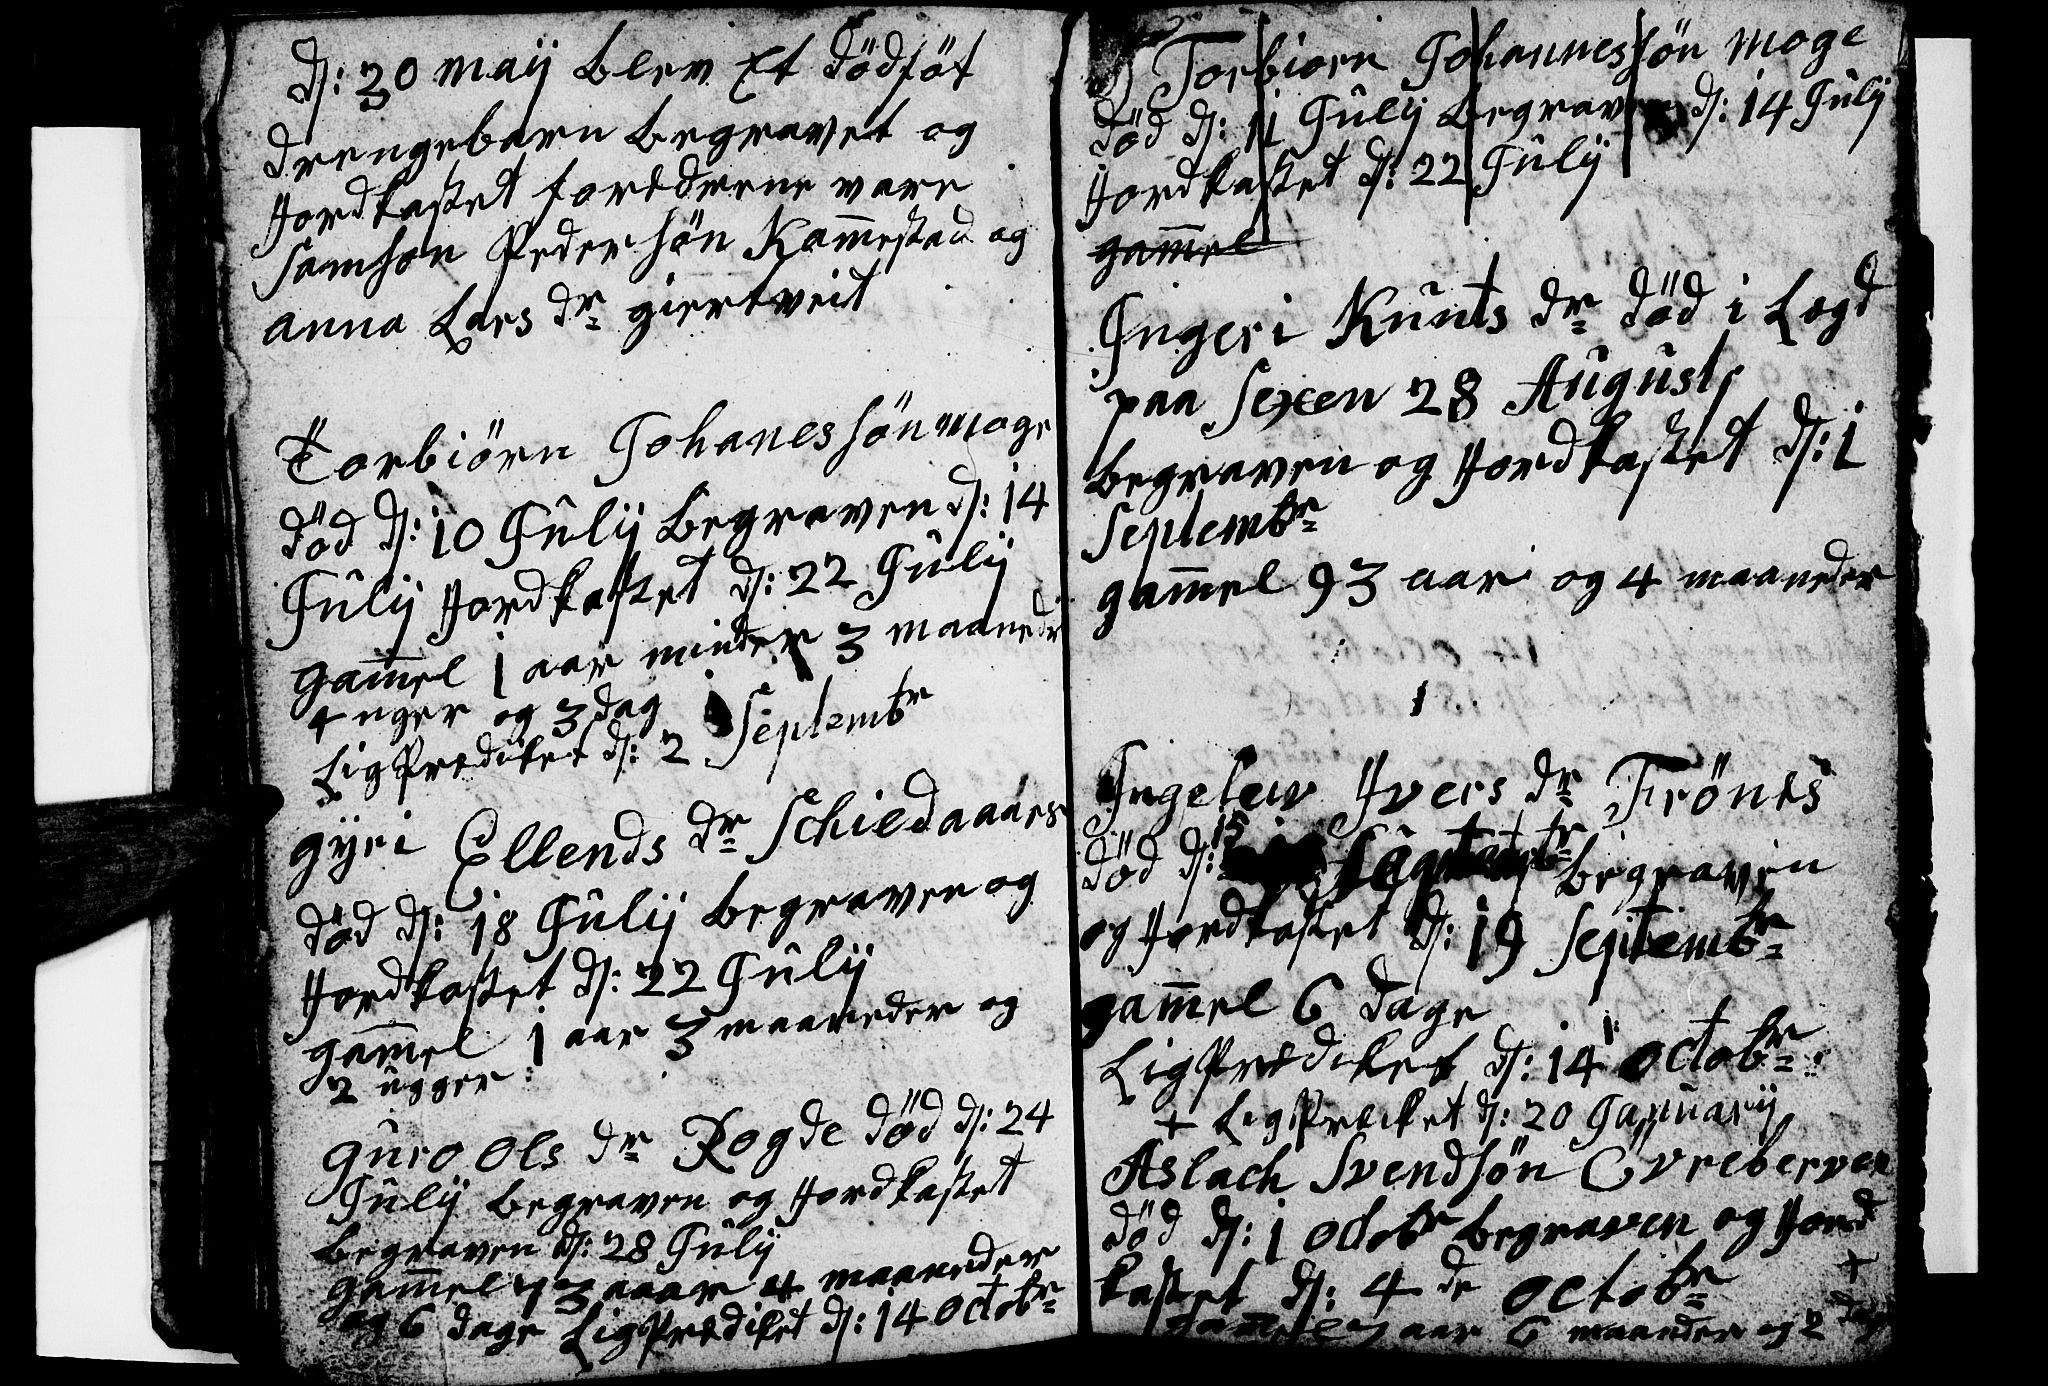 d: 30 maij blew Et dödföt
drengebarn begravet og
Hordkastet forederene vare
Samson Peder sön Kam̅estad og
anna Lars dr giertveit
Torbiörn Johanes sön moge
död d: 10 Jûlij begraven d: 14
Jûlij Hordkastet d: 22 Jûlij
gam̅el 1 aar minder 3 maaneder
4 uger og 3 dag
LigPrediket d: 2 Septembr
gyri Ellends dr Schiedaaars
död d: 18 Jûlij begraven og
Hordkastet d: 22 Jûlij
gam̅el 1 aar 3 maaneder og
2 ûgger
gûro ols dr Rogde död d: 24
Jûlij begraven og Hordkastet
begraven d: 28 Jûlij
gam̅el 73 aaar 4 maaneder
og 6 dage LigPrediket d: 14 octobr
Torbiorn Johannes sön moge
död d: 11 Jûlij begraven d: 14 Jûlij
Hordkastet d: 22 Jûlij
gam̅el
Ingeri Kûnts dr död i Legd
paa Sexen 28 Aûgust
begraven og Hordkastet d: 1
Septembr
gam̅el 93 aar og 4 maaneder
Ingelew Ivers dr Frönes
död d: 15 begraven
og Hordkastet d: 19 Septembr
gam̅el 6 dage
LigPrediket d: 14 octobr
+ LigPreiket d: 20 Janûarij
Aslach Svendsön Evreberven
död d: 1 octobr begraven og Hord
kastet d: 4 de octobr +
gam̅el aar 6 maaneder og 2 dag